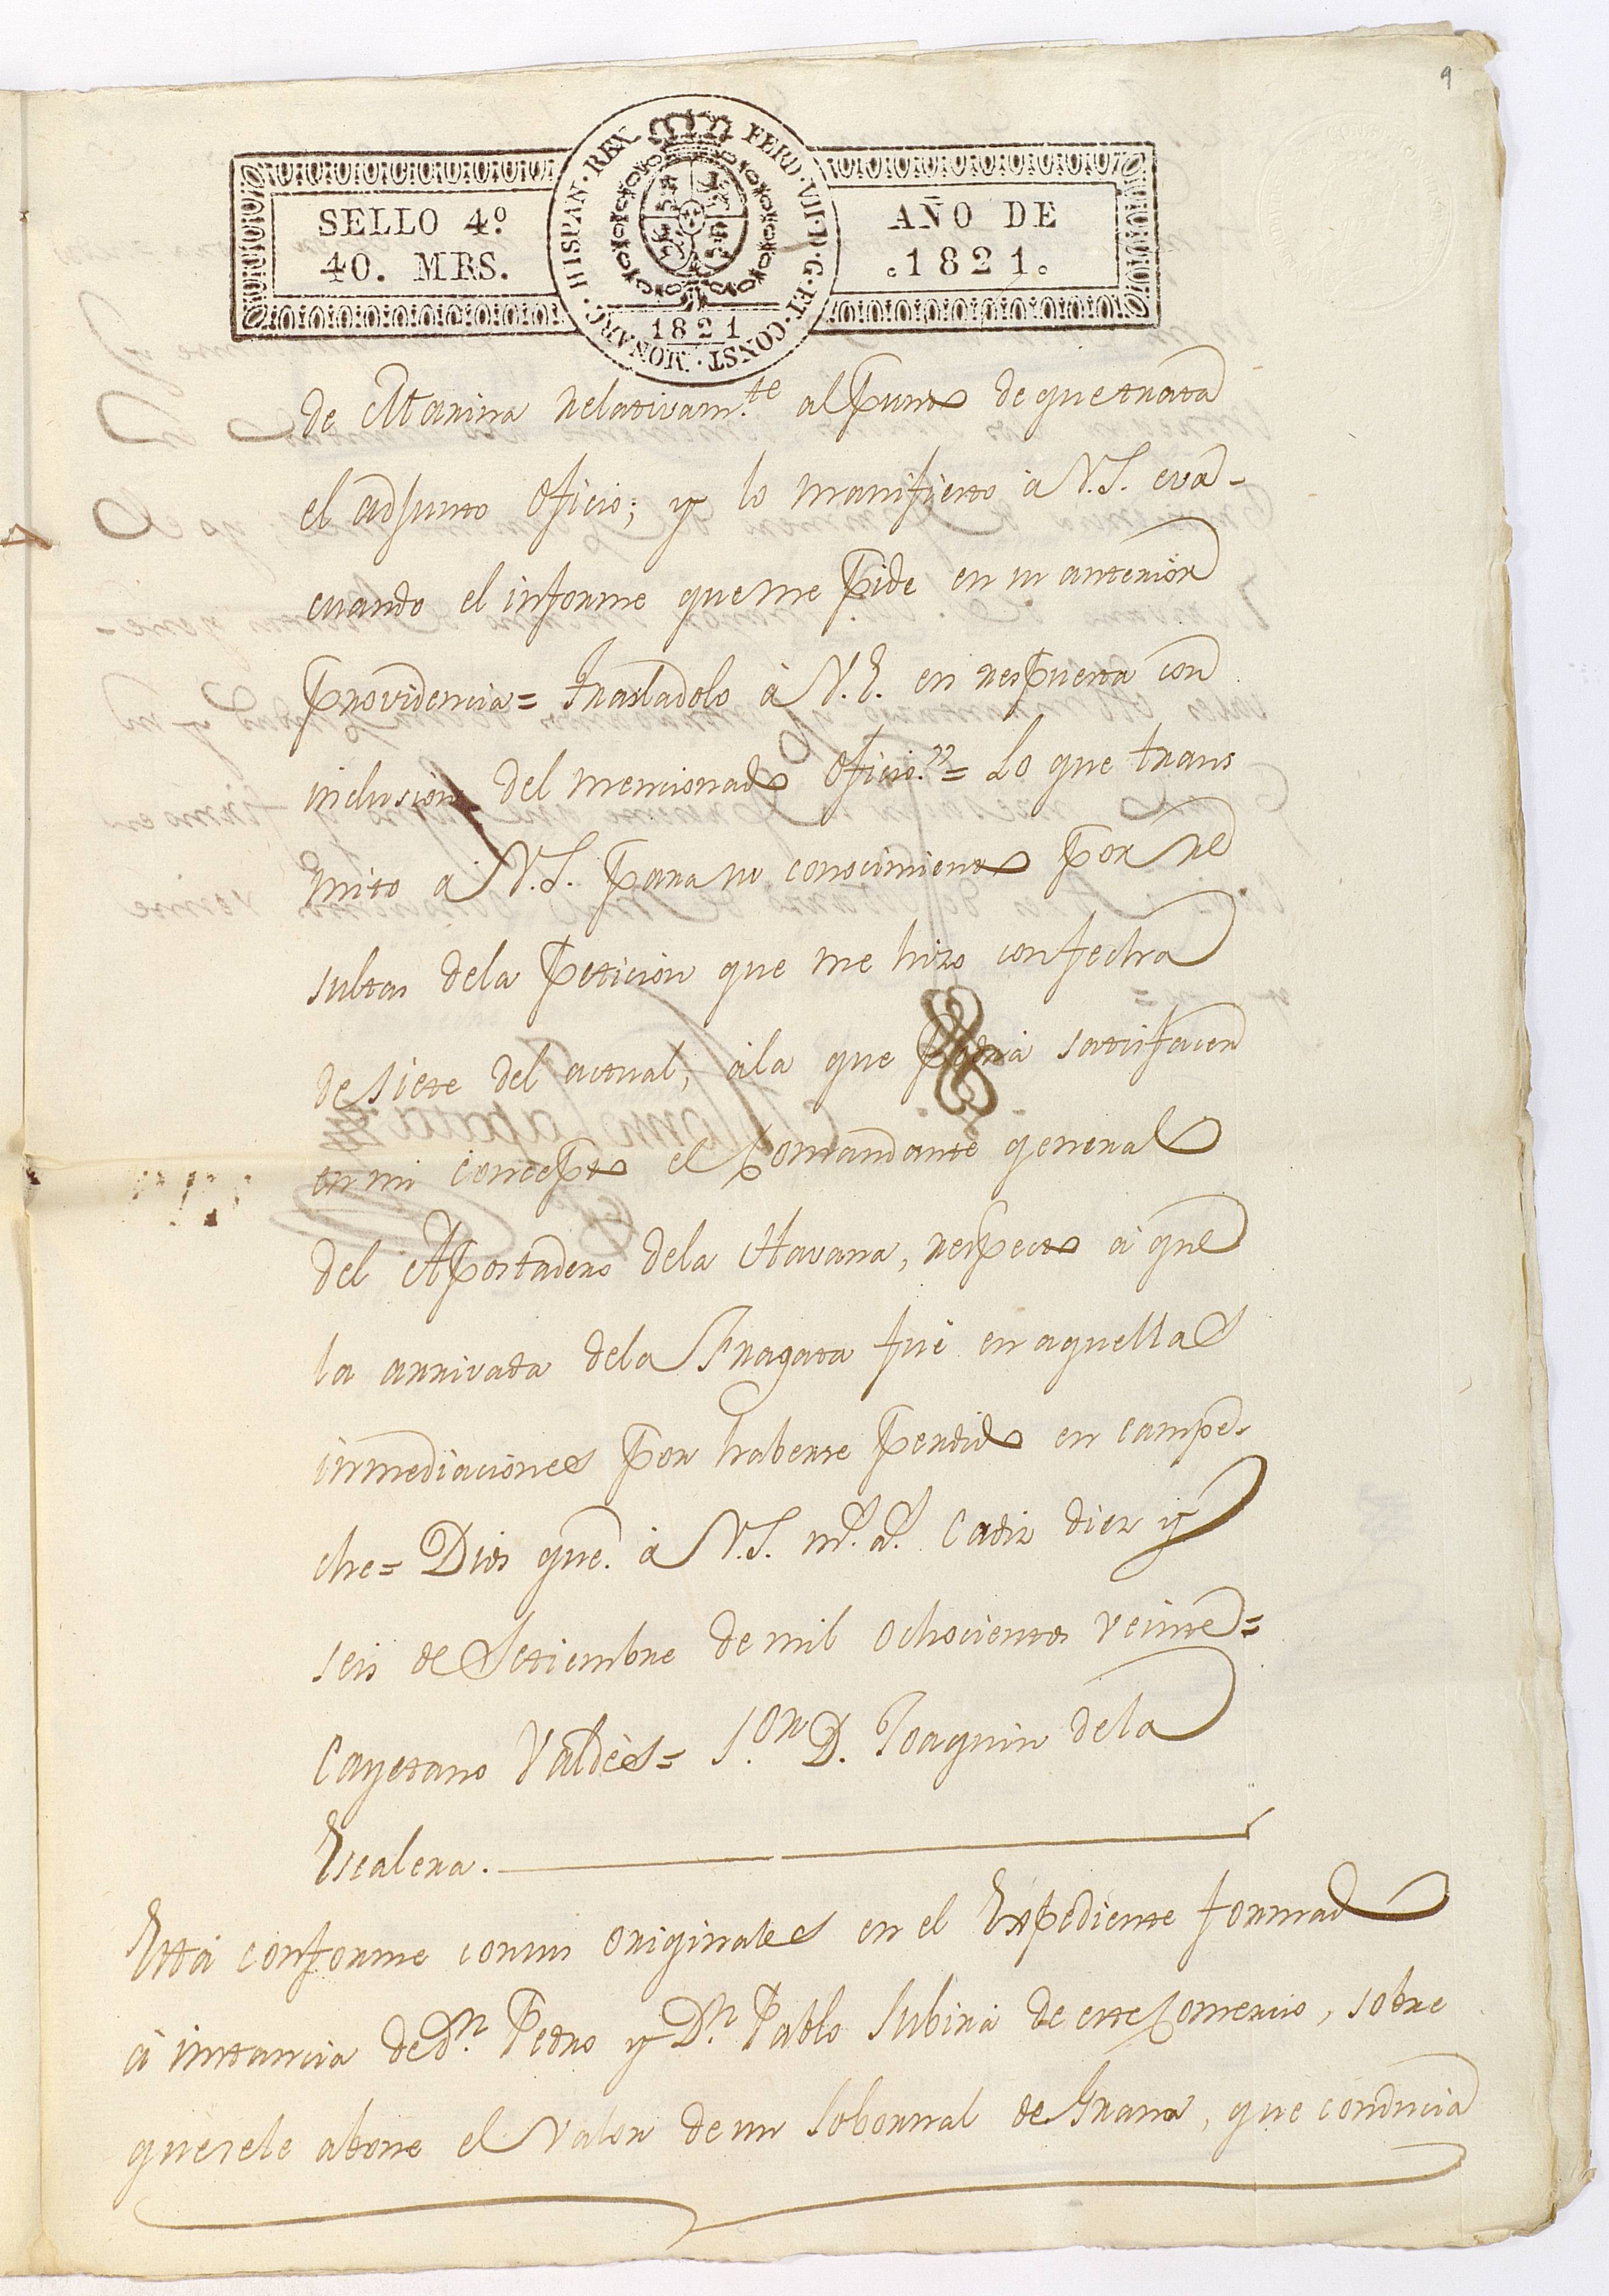 9
SELLO 4.º
40. MRS.
HISPAN·REX FERD·VII·D·G·ET·CONST·MONARC·
1821
AÑO DE
1821.
de Marina relativam.te al punto de que trata
el adjunto oficio; y lo manifiesto à V.S. eva-
cuando el informe que me pide en su anterior
providencia= Trasladolo à V.E. en respuesta con
inclusion del mencionado oficio."= Lo que trans
mito a V.S. para su conocimiento por re
sultas dela peticion que me hizo con fecha
de siete del actual, àla que podrà satisfacer
en mi concepto el Comandante general
del Apostadero dela Havana, respecto à que
la arrivada dela Fragata fuè en aquellas
inmediaciones por haberse perdido en campe-
che= Dios gue. à V.S. m.s a.s Cadiz diez y
seis de Setiembre de mil ochocientos veinte=
Cayetano Valdès= S.or D. Joaquin dela
Escalera.
Està conforme con sus originales en el Expediente formado
à instancia de D.n Pedro y D.n Pablo Subirà de este Comercio, sobre
que se le abone el valor de un Sobornal de Grana, que conducia